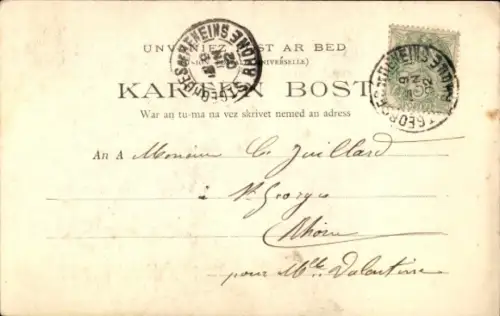 UNVANIEZ POST AR BED
(UNION POSTALE UNIVERSELLE)
KARTEN BOST
War an tu-ma na vez skrivet nemed an adress
An A Monsieur C. Juillard
à St Georges
Rhône
pour Mlle Valentine
ST GEORGES DE RENEINS RHONE
ST GEORGES DE RENEINS RHONE